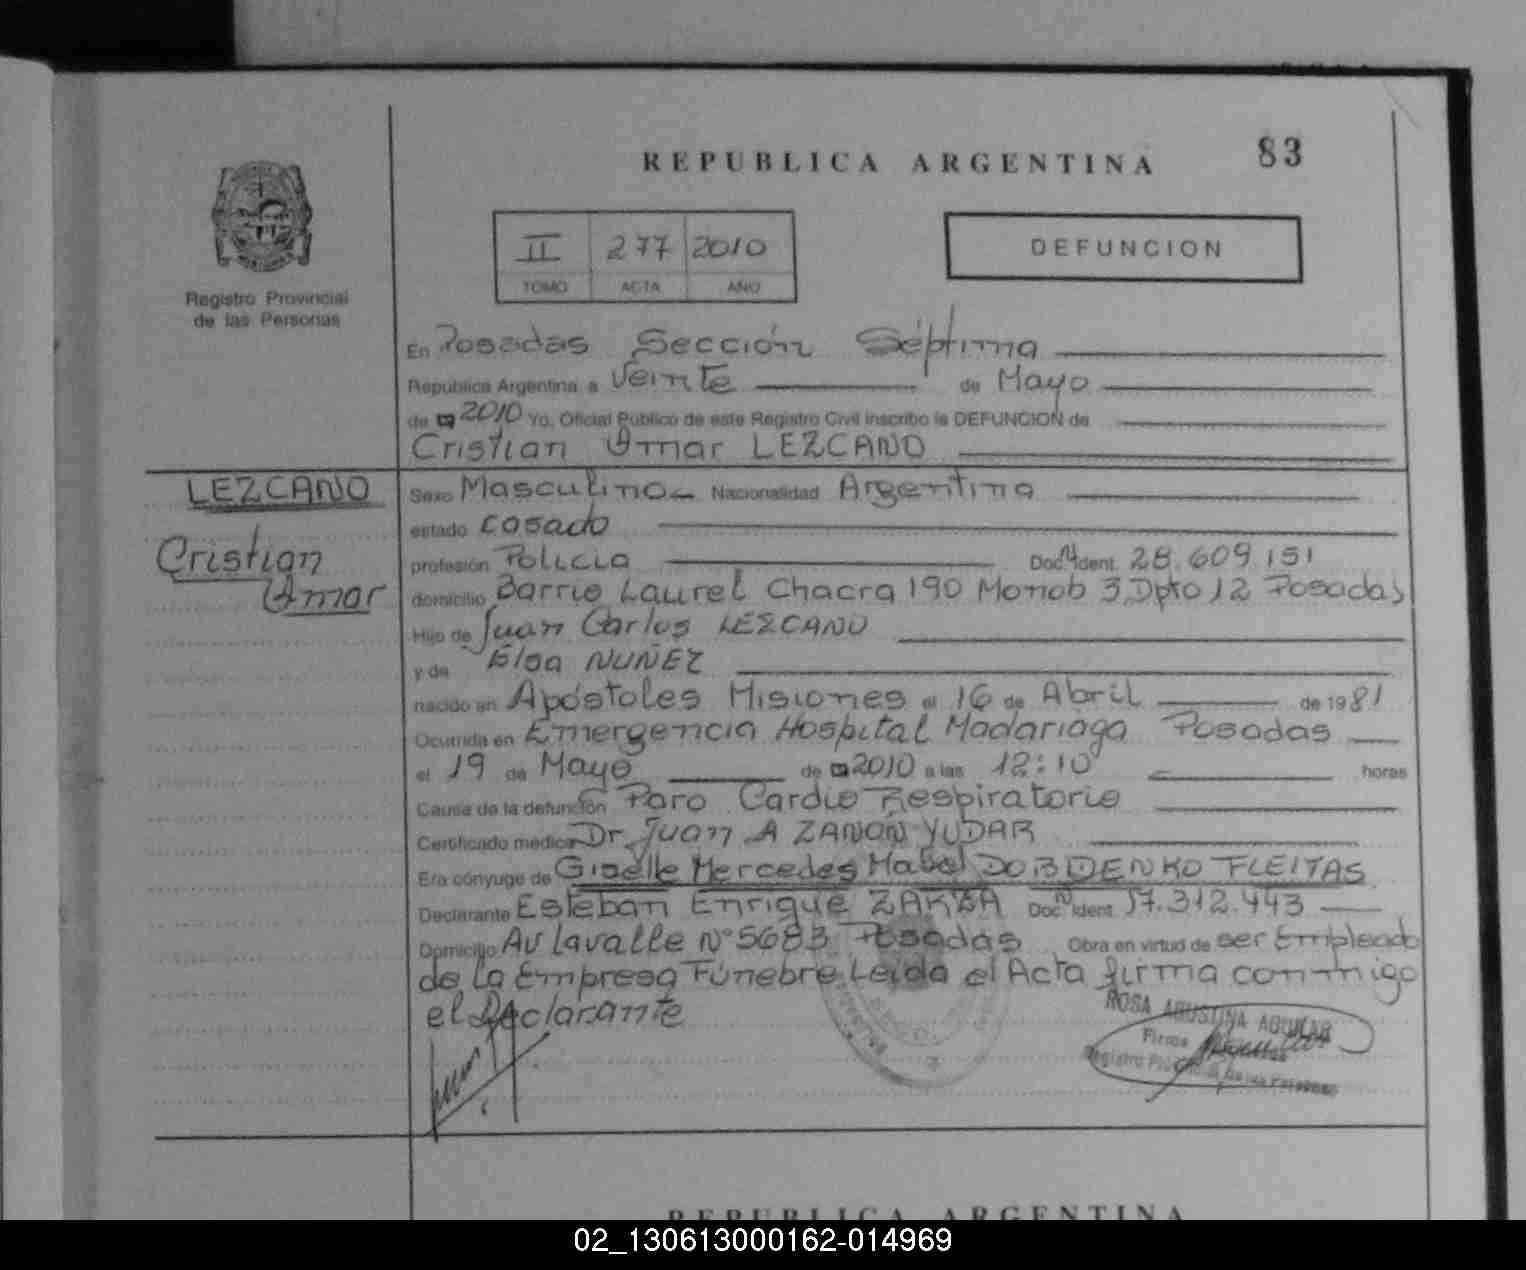 REPUBLICA ARGENTINA
83
II 277 2010
TOMO ACTA AÑO
DEFUNCION
Registro Provincial
de las Personas
En Posadas Sección Séptima
República Argentina a Veinte de Mayo
de 2010 Yo, Oficial Público de este Registro Civil inscribo la DEFUNCION de
Cristian Omar LEZCANO
LEZCANO
Cristian
Omar
Sexo Masculino Nacionalidad Argentina
estado Casado
profesión Policia Doc. Ident. 28.609.151
domicilio Barrio Laurel Chacra 190 Monob 3 Dpto 12 Posadas
Hijo de Juan Carlos LEZCANO
y de Elsa NUÑEZ
nacido en Apóstoles Misiones el 16 de Abril de 1981
Ocurrida en Emergencia Hospital Madariaga Posadas
el 19 de Mayo de 2010 a las 12:10 horas
Causa de la defunción Paro Cardio Respiratorio
Certificado médico Dr. Juan A ZANON YUDAR
Era cónyuge de Giselle Mercedes Mabel DOBIDENKO FLEITAS
Declarante Esteban Enrique Doc. Ident. 17.312.443
Domicilio Av Lavalle N° 5683 Posadas Obra en virtud de ser Empleado
de la Empresa Fúnebre Leida el Acta firma conmigo
el Declarante
ROSA AGUSTINA AGUILAR
Firma
02_130613000162-014969
REPUBLICA ARGENTINA